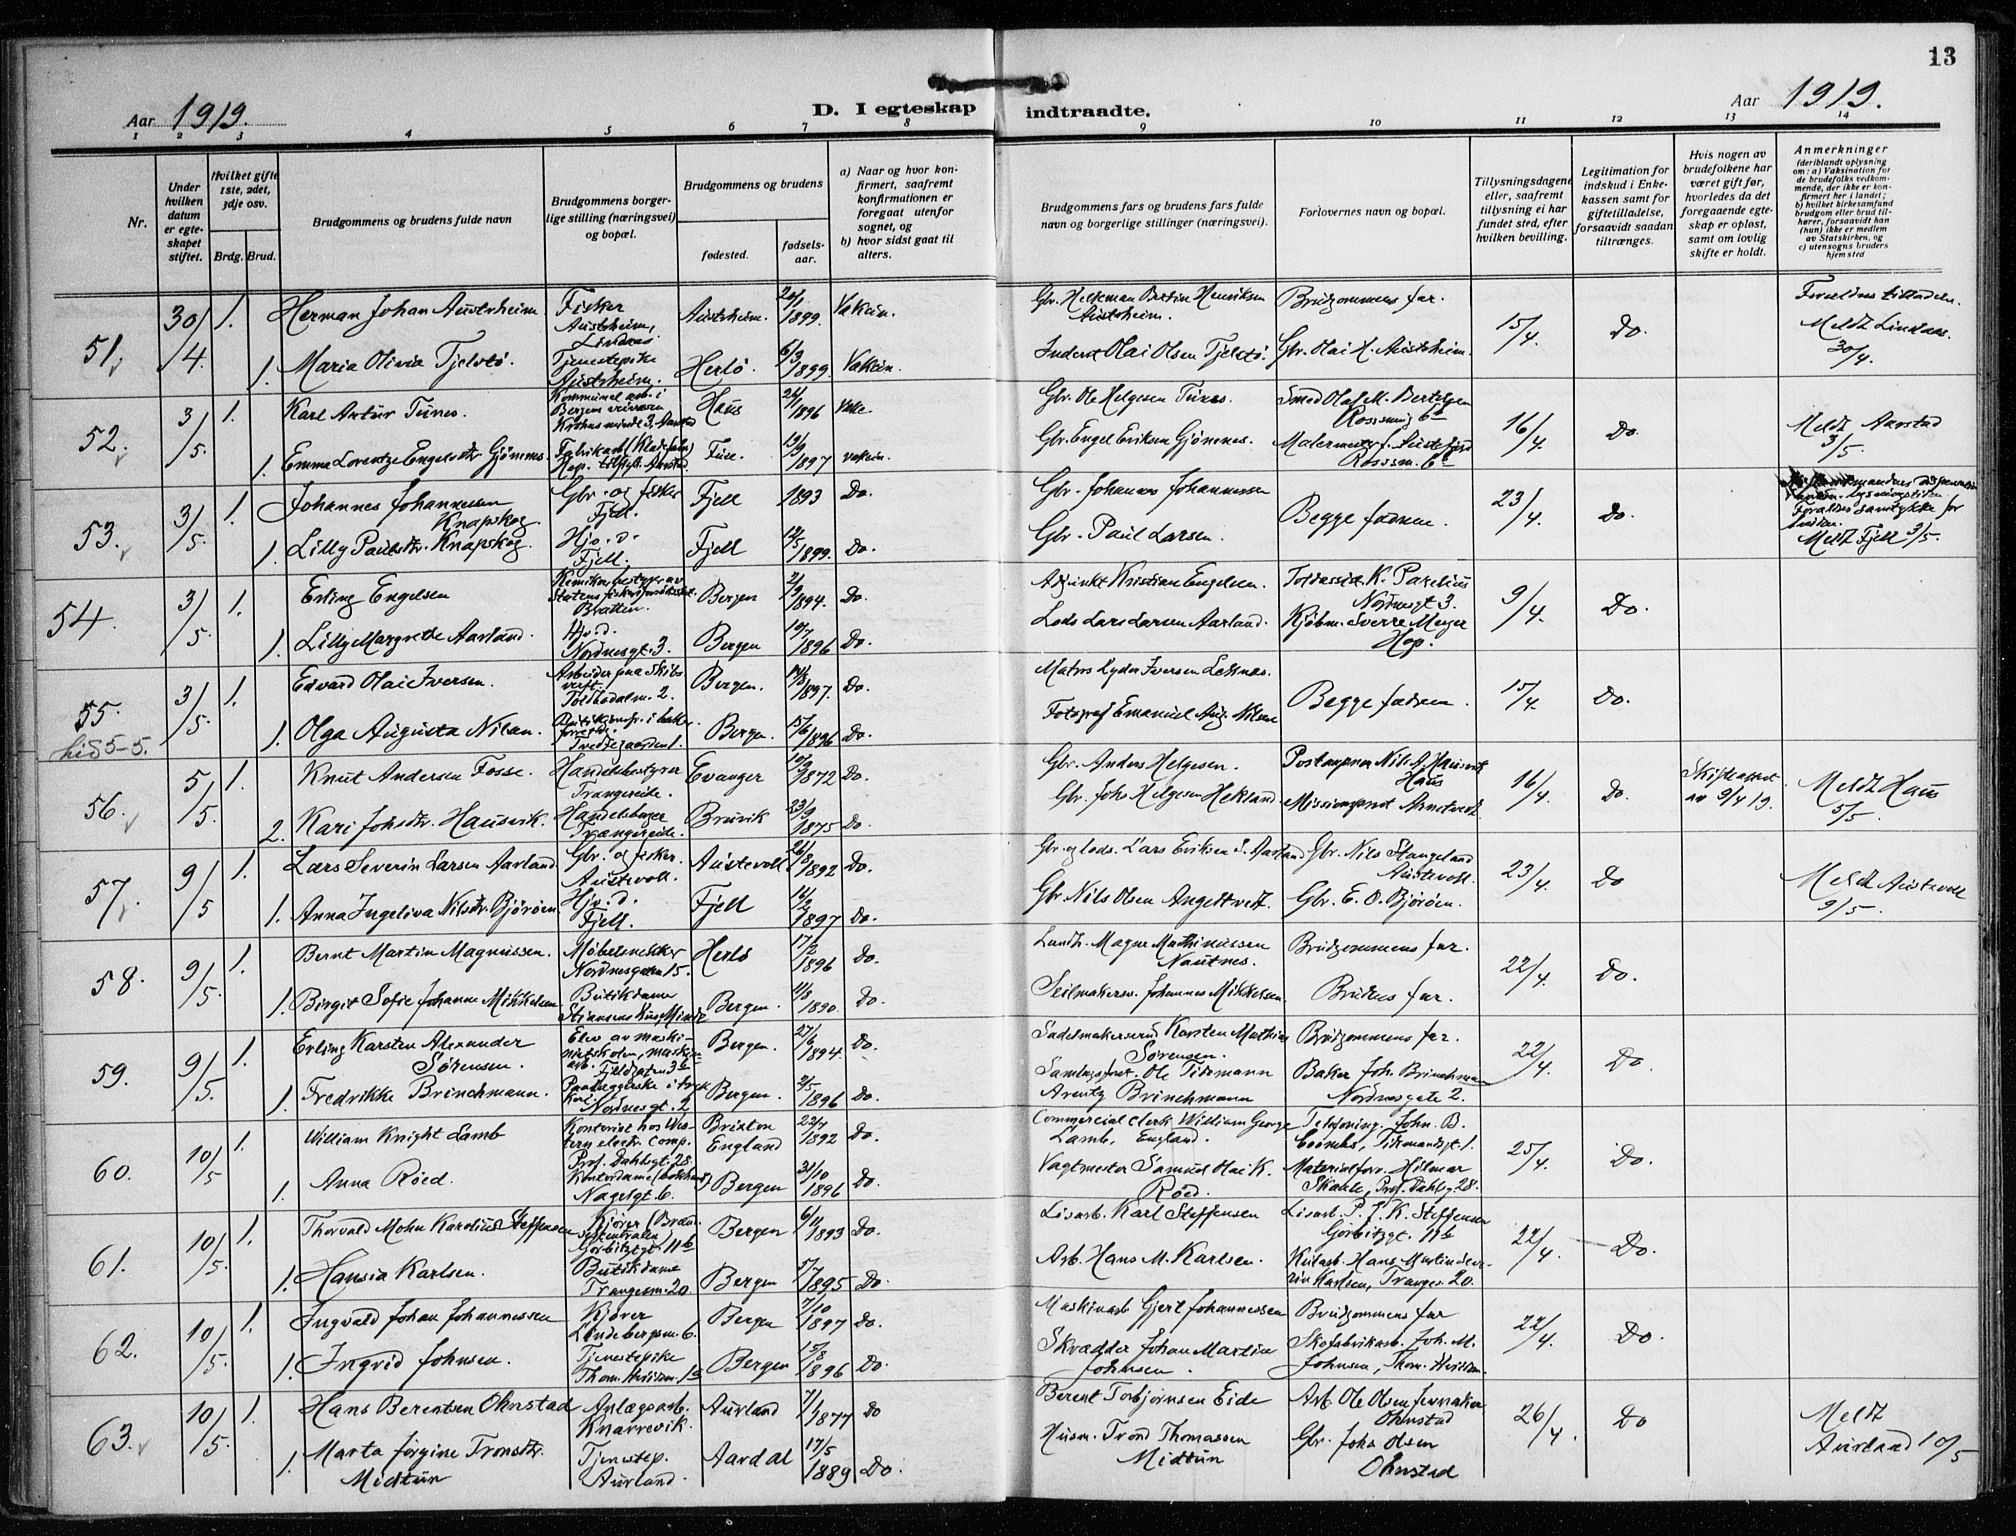 13
Aar 1919.
D. I egteskap indtraadte.
Aar 1919.
1 2 3 4 5 6 7 8 9 10 11 12 13 14
Nr.
Under hvilken datum er egteskapet stiftet.
Hvilket gifte 1ste, 2det, 3dje osv.
Brdg. Brud.
Brudgommens og brudens fulde navn
Brudgommens borgerlige stilling (næringsvei) og bopæl.
Brudgommens og brudens
fødested.
fødselsaar.
a) Naar og hvor konfirmert, saafremt konfirmationen er foregaat utenfor sognet, og
b) hvor sidst gaat til alters.
Brudgommens fars og brudens fars fulde navn og borgerlige stillinger (næringsvei).
Forlovernes navn og bopæl.
Tillysningsdagene eller, saafremt tillysning ei har fundet sted, efter hvilken bevilling.
Legitimation for indskud i Enkekassen samt for giftetilladelse, forsaavidt saadan tiltrænges.
Hvis nogen av brudefolkene har været gift før, hvorledes da det foregaaende egteskap er opløst, samt om lovlig skifte er holdt.
Anmerkninger
(deriblandt oplysning om: a) Vaksination for de brudefolks vedkommende, der ikke er konfirmert her i landet;
b) hvilket kirkesamfund brudgom eller brud tilhører, forsaavidt han (hun) ikke er medlem av Statskirken, og
c) utensogns bruders hjemsted
51. 30/4 1. Herman Johan Austrheim Fisker Austrheim, Lindaas Austrheim. 20/1 1899. Vakcin. Gbr. Helteman Bertin Henriksen Austrheim. Brudgommens far. 15/4. Do. Forældres tilladelse.
1. Maria Olivia Tjeldstø. Tjenestepike Austrheim. Herlø 6/3 1899. Vakcin. Inderst Olai Olsen Tjelstø. Gbr. Olai H. Austrheim. Meldt Lindaas. 30/4.
52. 3/5. 1. Karl Artur Tunes. Haus 1896 Gbr. Ole Helgesen Tunes. Smed Olaf M. Bertelsen 16/4. Do. Meldt Aarstad 3/5.
1. Emma Lorentze Engelsdtr Gjønnes. 13/3 1897 vakcin. Gbr. Engel Eriksen Gjønnes.
53. 3/5. 1. Johannes Johannessen Knapskog Gbr. og fisker Fjell. Fjell 1893 Do. Gbr. Johannes Johannessen Begge fædrene. 23/4. Do.
1. Lilly Paulsdtr. Knapskog. Hjv. d. Fjell. Fjell 12/5 1899. Do. Gbr. Paul Larsen. Meldt Fjell 3/5.
54. 3/5. 1. Erling Engelsen Kemiker, bestyrer av Statens Bergen 2/9 1894. Do. Adjunkt Kristian Engelsen. K. Parelius Nordnesgt 3. 9/4. Do.
1. Lilly Margrethe Aarland. Hjv. d. Nordnesgt. 3. Bergen 10/7 1896 Do. Lods Lars Larsen Aarland. Kjøbm. Sverre Meyer Hop.
55. 3/5. 1. Edvard Olai Iversen. Arbeider paa Skibsverft. Toldbodalm. 2. Bergen. 1897. Do. Matros Lyder Iversen Leknæs. Begge fædrene 15/4. Do.
his 5-5. 1. Olga Augusta Nilsen. Tredtegaarden 1. Bergen. 15/6 1896 Do. Fotograf Emanuel Aug. Nilsen
56. 5/5. 1. Knut Andersen Fosse. Handelsbestyrer Trangereide. Evanger 10/9 1872 Do. Gbr. Anders Helgesen. Postaapner Nils A. Hausvik Haus 16/4. Do. Skifteattest av 9/4 19. Meldt Haus 5/5.
2. Kari Johsdtr. Hausvik. Handelsborger Trængereide. Bruvik 23/9 1875 Do. Gbr. Johs Helgesen Hekland. Missionsprest Arnetvedt.
57. 9/5 1. Lars Severin Larsen Aarland Gbr. og fisker. Austevoll. Austevoll 26/8 1892 Do. Gbr. og lods. Lars Eriksen S. Aarland Gbr. Nils Stangeland Austevoll. 23/4. Do Meldt Austevoll 9/5.
1. Anna Ingeliva Nilsdtr. Bjørøen. Hjv. d. Fjell. Fjell 14/2 1897 Do. Gbr. Nils Olsen Angeltveit. Gbr. E. O. Bjørøen.
58. 9/5. 1. Bernt Martin Magnussen. Møbelsnekker Nordnesgaten 15. Herlø 17/2 1896 Do. Landh. Magne Mathinussen Nautnes. Brudgommens far. 22/4. Do.
1. Birgit Sofie Johanne Mikkelsen Butikdame Bergen. 11/8 1890. Do. Seilmakersv. Johannes Mikkelsen. Brudens far.
59. 9/5. 1. Erling Karsten Alexander Sørensen. Elev av maskinistskolen, Bergen. 27/6 1894. Do. Sadelmakersvend Karsten Mathias Sørensen. Brudgommens far. 22/4. Do.
1. Fredrikke Brinchmann. Paalæggerske i Nordnesgt. 2 Bergen. 2/5 1896 Do. Ole Tidemann Arentz Brinchmann Baker Joh. Brinchmann Nordnesgate 2.
60. 10/5 William Knight Lamb Kontorist hos Western electr. comp. Prof. Dahlsgt. 28 Brixton England 22/7 1892 Do. Commercial clerk William George Lamb, England. John. B. Coombs, Tidemandsgt. 1. 25/4. Do.
1. Anna Röed. Nagelgt 6. Bergen 31/10 1896 Do. Vagtmester Samuel Olai K. Röed. Materialforv. Hilmar Prof. Dahlsg 28.
61. 10/5. 1. Thorvald Mohn Karelius Steffensen Kjører Bergen 6/11 1893 Do. Lisarb. Karl Steffensen Lisarb. P. J. K. Steffensen Gorbitzgt. 11b 22/4. Do.
1. Hansia Karlsen. Butikdame Trangesm. 20 Bergen 1895 Do. Arb. Hans M. Karlsen. Kularb. Hans Martin Severin Karlsen, Tranges. 20.
62. 10/5. 1. Ingvald Johan Johannessen Kjører Lindebergsm. 6. Bergen 7/10 1897 Do. Maskinarb Gjert Johannessen Brudgommens far 22/4. Do.
1. Ingrid Johnsen. Tjenestepike Bergen 15/8 1896 Do. Skrædder Johan Martin Johnsen. Skofabrikarb. Joh. M. Johnsen,
63. 10/5. 1. Hans Berentsen Ohnstad Anlægsarb. Knarrevik. Aurland 7/1 1877 Do Berent Torbjørnsen Eide Arb. Ole Olsen Ohnstad 26/4. Do Meldt Aurland 10/5
1. Marta Jørgine Tronsdtr. Midtun Tjenestep. Aurland. Aardal 17/5 1889 Do. Husm. Trond Thomassen Midtun Gbr. Johs Olsen Ohnstad